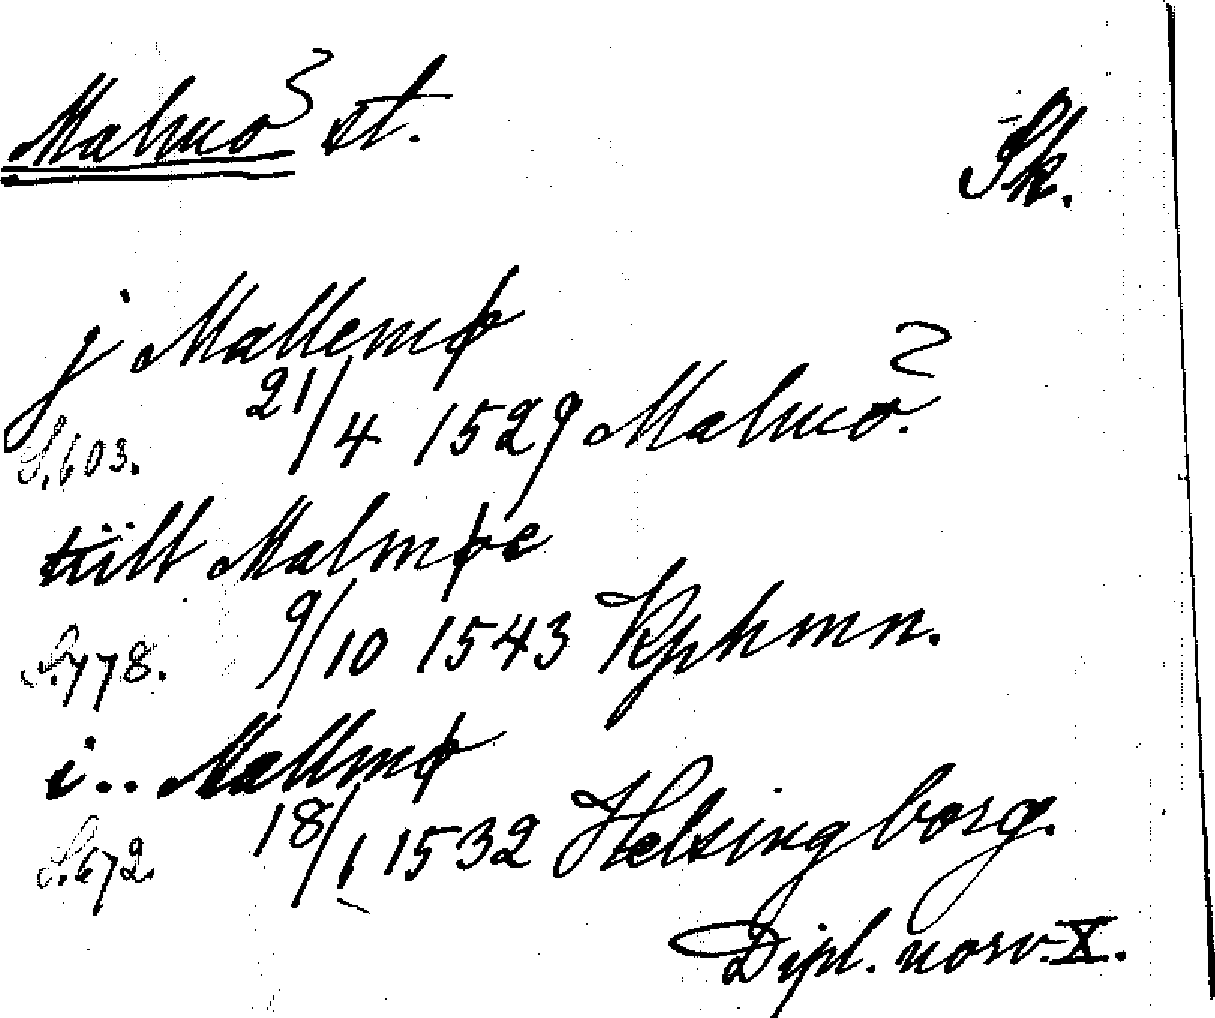 Malmö st.
Sk.
j Mallemø
S. 603. 21/4 1529 Malmö.
tiill Malmøe
S. 778. 9/10 1543 Kphmn.
i.. Mallmø
S. 672. 18/1 1532 Helsingborg.
Dipl. norv. X.